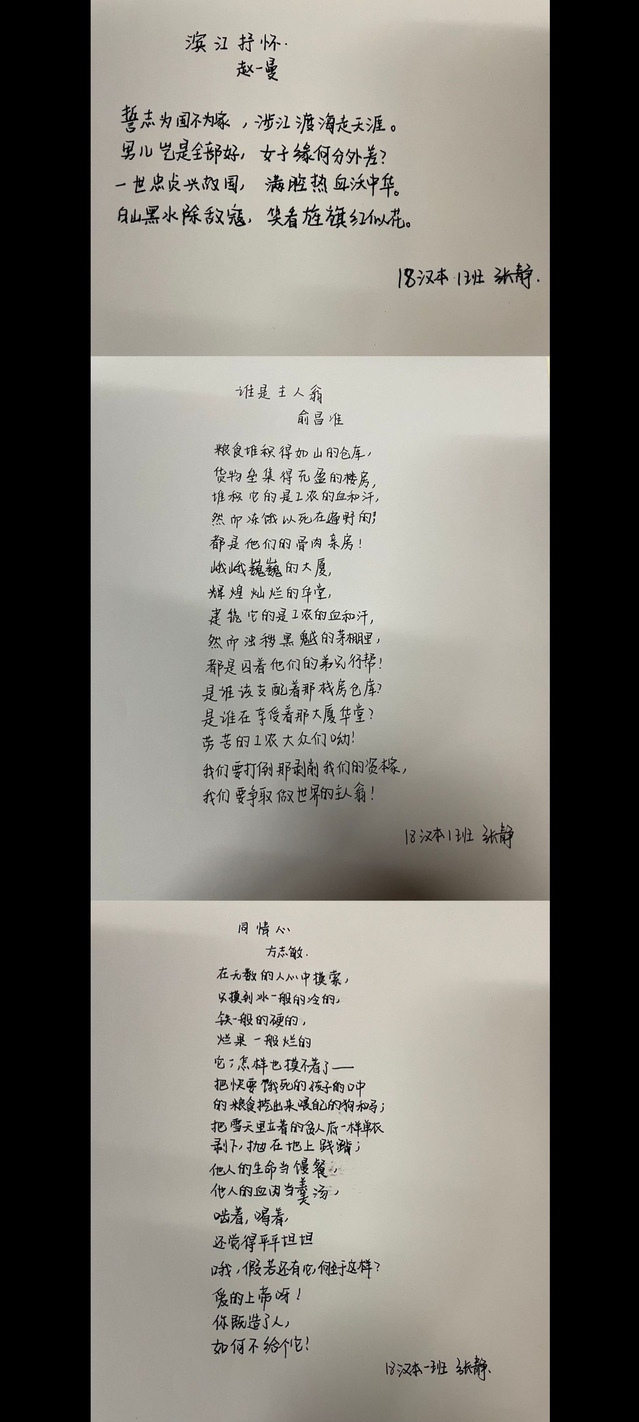 滨江抒怀.
赵一曼
誓志为国不为家，涉江渡海走天涯。
男儿岂是全部好，女子缘何分外差？
一世忠贞兴故国，满腔热血沃中华。
白山黑水除敌寇，笑看旌旗红似花。
18汉本1班 张静.
谁是主人翁
俞昌准
粮食堆积得如山的仓库，
货物垒集得充盈的楼房，
堆积它的是工农的血和汗，
然而冻饿以死在遍野的！
都是他们的骨肉亲房！
峨峨巍巍的大厦，
辉煌灿烂的华堂，
建筑它的是工农的血和汗，
然而浊秽黑魆的茅棚里，
都是囚着他们的弟兄行帮！
是谁该支配着那栈房仓库？
是谁在享受着那大厦华堂？
劳苦的工农大众们呦！
我们要打倒那剥削我们的资本家，
我们要争取做世界的主人翁！
18汉本1班 张静
同情心
方志敏.
在无数的人心中摸索，
只摸到冰一般的冷的，
铁一般的硬的，
烂果一般烂的
它，怎样也摸不着了——
把快要饿死的孩子的口中
的粮食挖出来喂自己的狗和马；
把雪天里立着的贫人底一件单衣
剥下，抛在地上践踏；
他人的生命当馒餐，
他人的血肉当羹汤，
啮着，喝着，
还觉得平平坦坦
哦，假若还有它，何至于这样？
爱的上帝呀！
你既造了人，
如何不给个它！
18汉本一班 张静.